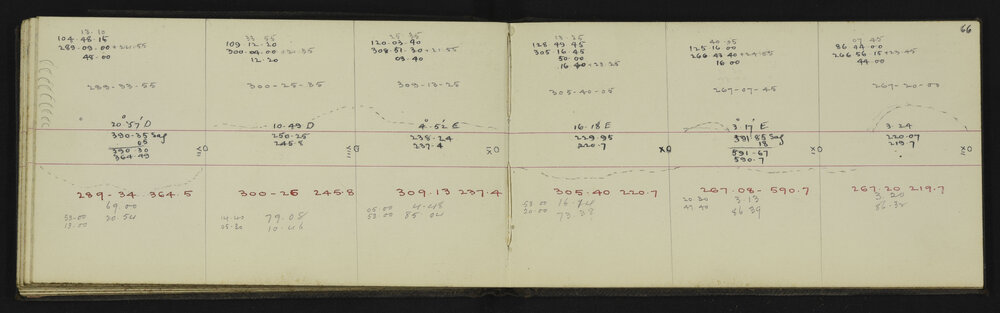 66
13.10
104-48-15
289-09-00+24.55
45-00
289-33-55
20°57' D
390.35 Sag
05
390.30
364.49
289-34 364.5
69.00
53-00 20.54
13-00
33 55
109 12-20
300-04-00+21.35
12.20
300-25-35
10.49 D
250.25
245.8
VIII
300-25 245.8
14-40 79.08
05.20 10.46
25 35
120-03-40
308-51-30+21-55
03-40
309-13-25
4°-52' E
238-24
237.4
309.13 237.4
05 00 4.48
53-00 85 04
35 25
128 49 45
305 16-45
50.00
16.40+23.25
305-40-05
16.18 E
229.95
220.7
305.40 220.7
53 00
20-00 73 38
40-05
125-16-00
266 43 40+24.55
16 00
267-07-45
3°17' E
591.85 Sag
18
591.67
590.7
267.08- 590.7
20.30 3.13
47.40 86 39
07 45
86 44 00
266 56 15+23.45
44 00
3.24
220.07
219.7
267.20 219.7
3.20
86.32